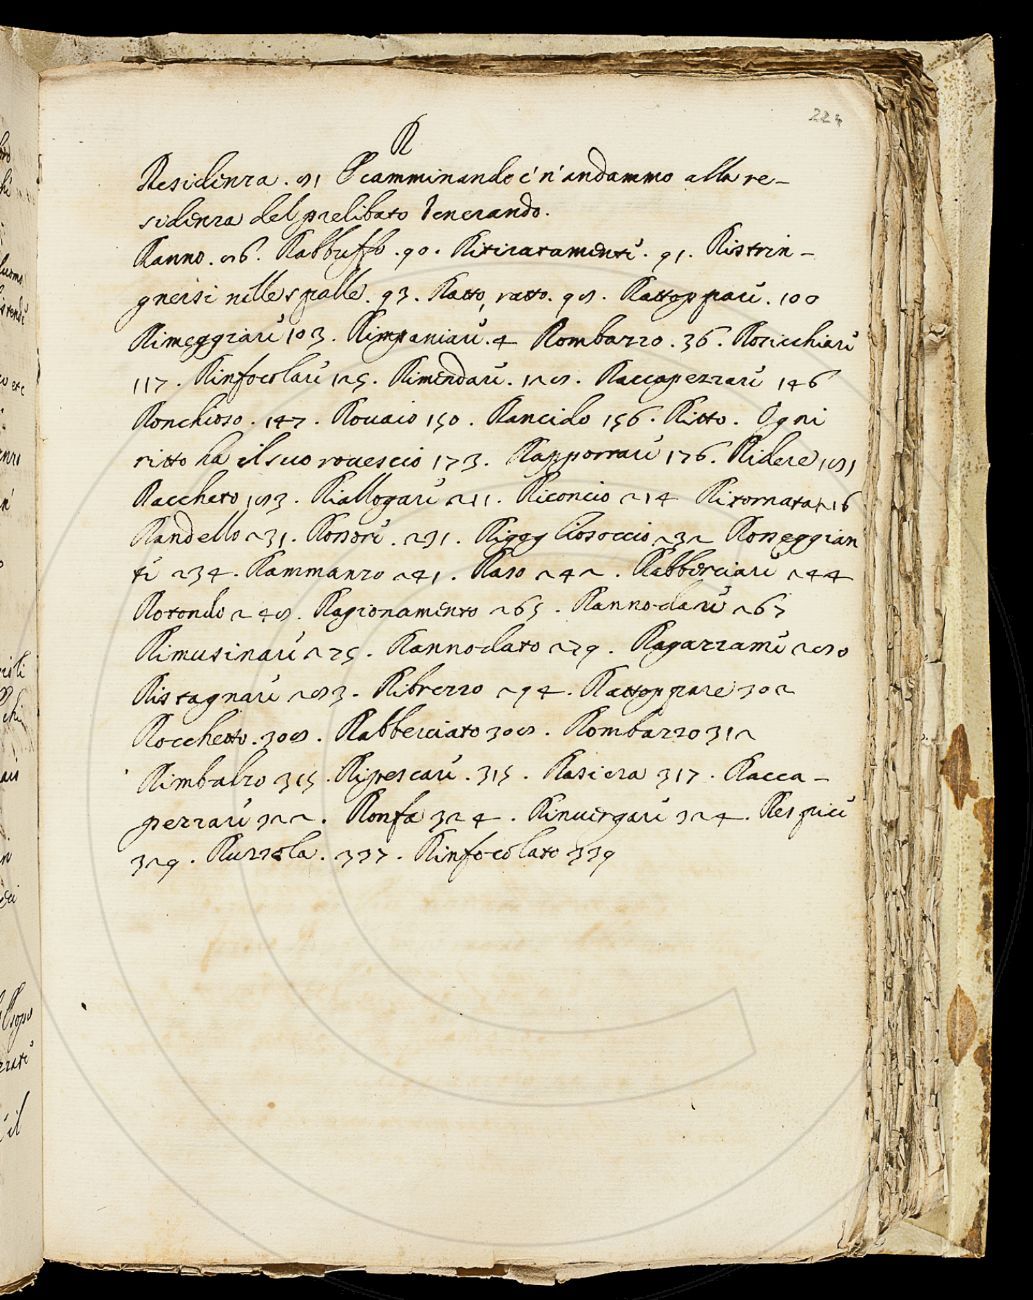 224
R
Residenza. 81 E camminando c'n'andammo alla re-
sidenza del prelibato Venerando.
Ranno. 86. Rabbuffo. 90. Ritiratamente. 91. Ristrin-
gnersi nelle spalle. 93. Ratto, ratto. 98. Rattoppare. 100
Rimeggiare 103. Rimpaniare. 4 Rombazzo. 36. Rosicchiare
117. Rinfocolare 125. Rimendare. 128. Raccapezzare 146
Ronchioso. 147. Rovaio 150. Rancido 156. Ritto. Ogni
ritto ha il suo rovescio 173. Rapportare 176. Ridere 181
Raccheto 183. Riallogare 211. Riconcio 214 Ritornata 216
Randello 231. Rossori. 231. Rigogliosoccio 232 Rosseggian
te 234. Rammanzo 241. Raso 242. Rabberciare 244
Rotondo 248. Ragionamento 265. Rannodare 267
Rimusinare 275. Rannodato 279. Ragazzame 280
Ristagnare 283. Ribrezzo 294. Rattoppare 302
Rocchetto. 308. Rabberciato 308. Rombazzo 312
Rimbalzo 315. Ripescare. 315. Rasiera 317. Racca-
pezzare 322. Ronfa 324. Rinvergare 324. Respice
329. Ruzzola. 337. Rinfocolato 339